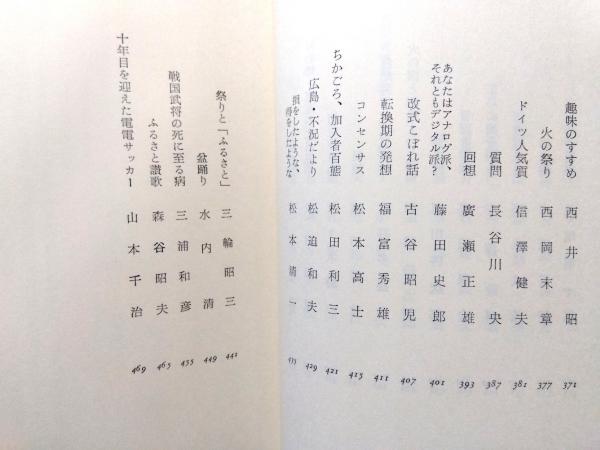 趣味のすすめ 西井昭 371
火の祭り 西岡末章 377
ドイツ人気質 信澤健夫 381
質問 長谷川央 387
回想 廣瀬正雄 393
あなたはアナログ派、
それともデジタル派? 藤田史郎 401
改式こぼれ話 古谷昭児 407
転換期の発想 福富秀雄 411
コンセンサス 松本高士 415
ちかごろ、加入者百態 松田利三 421
広島・不況だより 松迫和夫 429
損をしたような、
得をしたような 松本清一 435
祭りと「ふるさと」 三輪昭三 441
盆踊り 水内清 449
戦国武将の死に至る病 三浦和彦 455
ふるさと讃歌 森谷昭夫 465
十年目を迎えた電電サッカー 山本千治 469